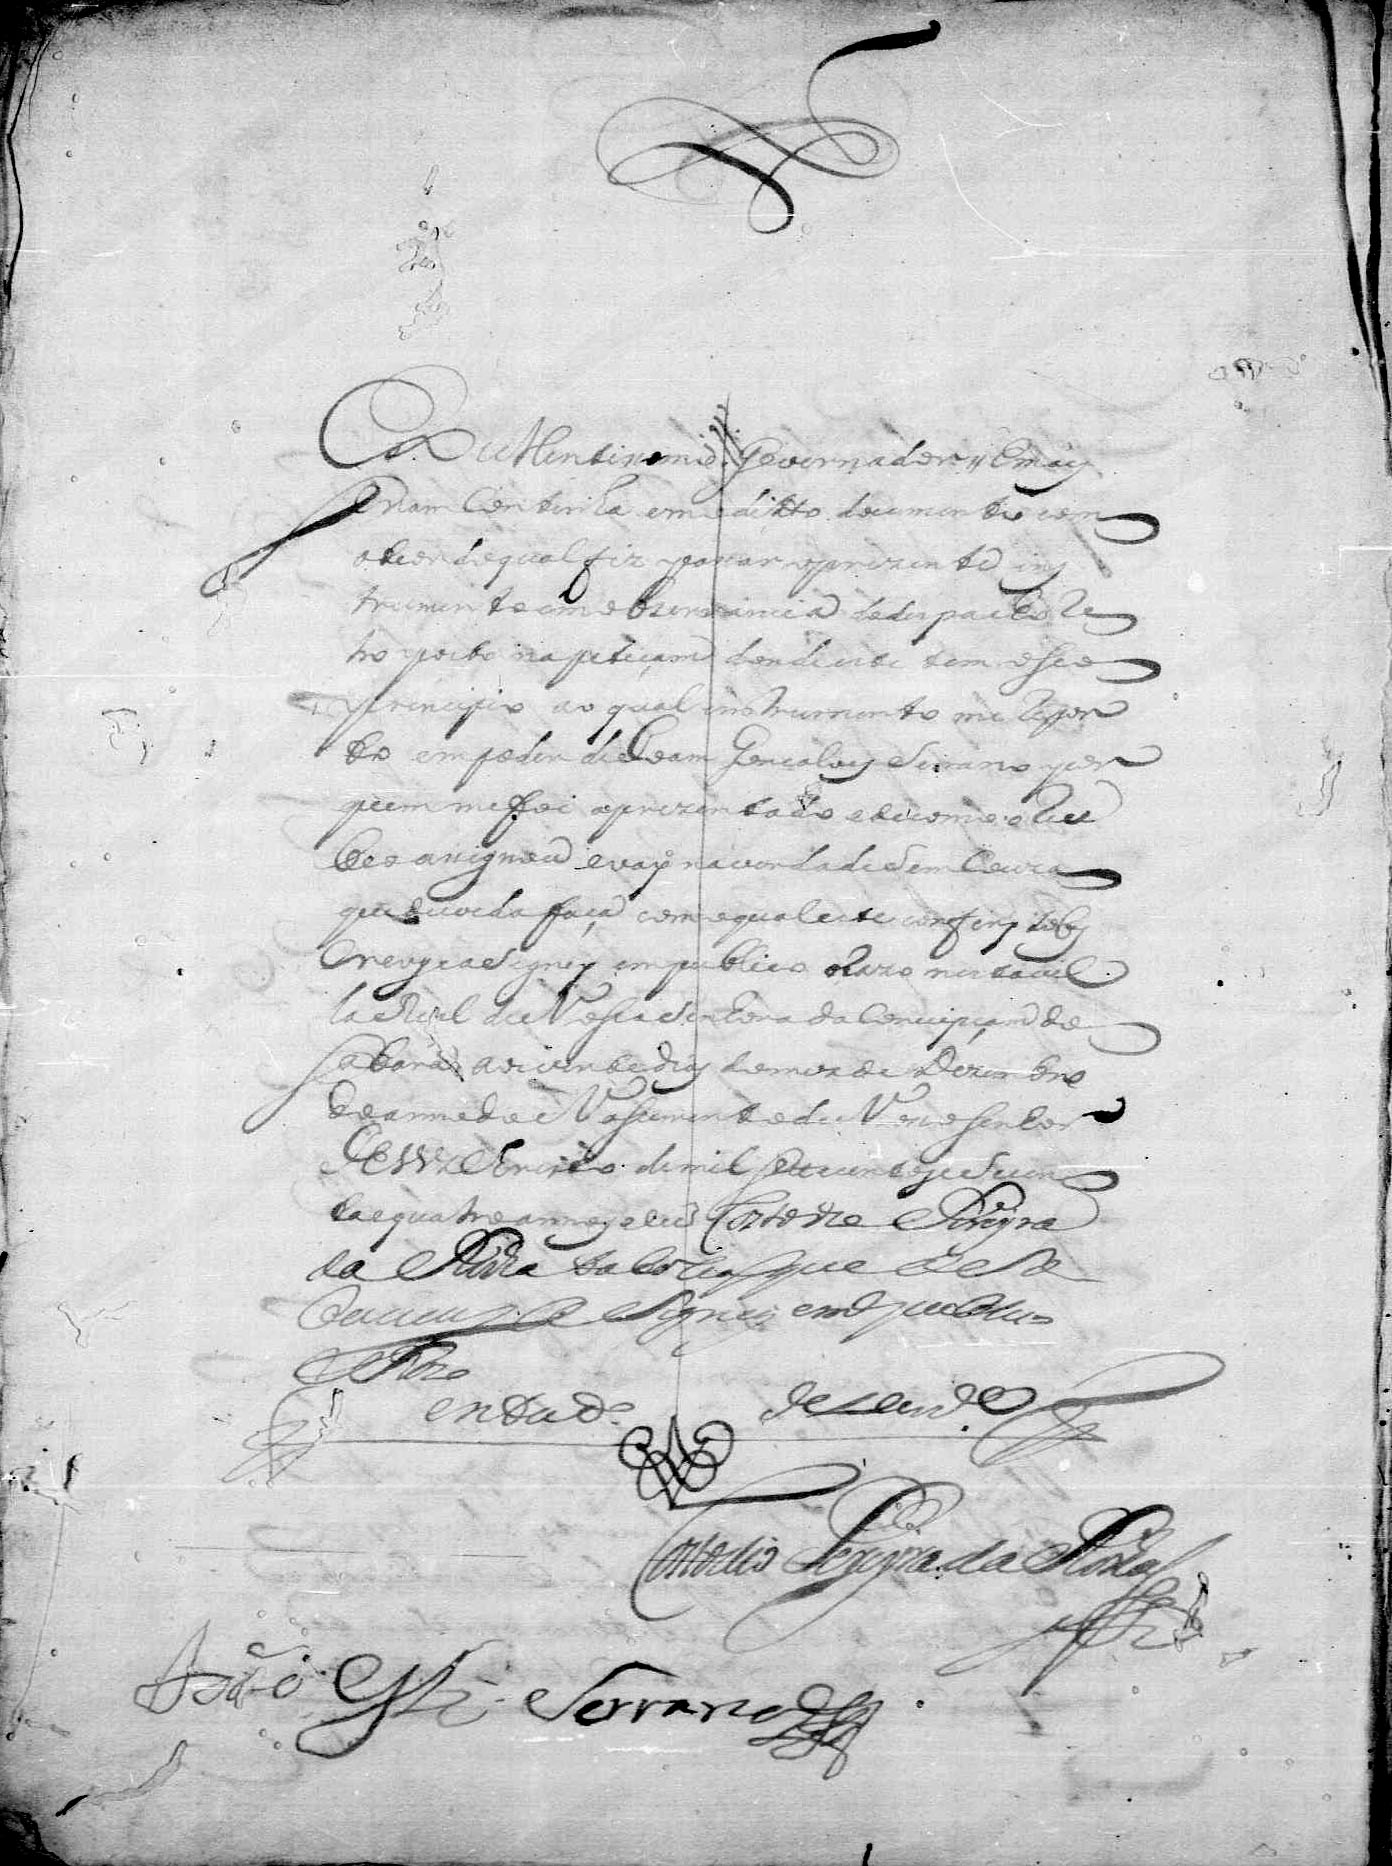 de Mentironio Governador, e mais
senam Continha em o ditto documento com
o teor do qual fiz pasar o prezente ins
trumento em observancia do despacho Re
tro posto na petiçam donde este tem o seo
principio ao qual instrumento me repor
to em poder de Joam Gonçalves Serrano por
quem me foi aprezentado e de como o Rece
beo asignou e vay na verdade sem Couza
que duvida faça com o qual este conferi sob
escrevy e asigney em publico e Razo nesta vil
la Real de Nossa Senhora da Conceipçam do
Sabará aos vinte dias do mes de Dezembro
do anno do Nascimento de Nosso Senhor
Jesus Christo de mil settecentos e secen
ta e quatro annos e eu Custodio Pereyra
da Roza taballiam que o
sobescrevy e asigney em publico
e Razo
em testo de verde
Custodio Pereyra da Roza
João Glz Serrano